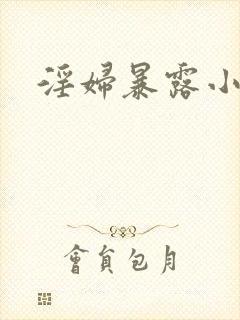 淫婦暴露小
會員包月